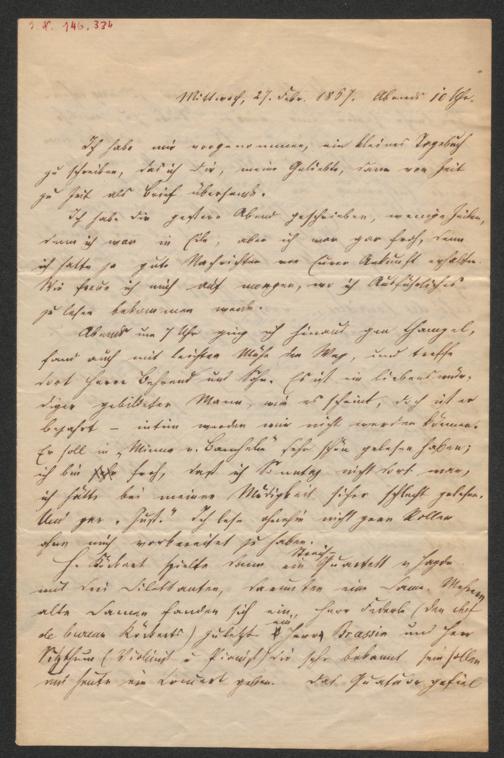 S. N. 146.334
Mittwoch, 27. Febr. 1867. Abends 10 Uhr.
Ich habe mir vorgenommen, ein kleines Tagebuch
zu schreiben, das ich Dir, meine Geliebte, dann von Zeit
zu Zeit als Brief übersende.
Ich habe Dir gestern Abend geschrieben, wenige Zeilen,
denn ich war in Eile, aber ich war gar froh, denn
ich hatte ja gute Nachrichten von Eurer Ankunft erhalten.
Wie freue ich mich auf morgen, wo ich Ausführliches
zu lesen bekommen werde.
Abends um 7 Uhr ging ich hinaus gen
fand auch mit leichter Mühe den Weg, und treffe
dort Herrn Behrend und Sohn. Es ist ein liebenswür-
diger gebildeter Mann, wie es scheint, doch ist er
bejahrt – intim werden wir nicht werden können.
Er soll in „Minna v. Barnhelm" sehr schön gelesen haben;
ich bin froh, daß ich Sonntag nicht dort war,
ich hätte bei meiner Müdigkeit sicher schlecht gelesen.
Und gar „Just." Ich lese ohnehin nicht gern Rollen
ohne mich vorbereitet zu haben.
H. spielte dann ein Streich-Quartett v Haydn
mit drei Dilettanten, darunter eine Dame. Mehrere
alte Damen fanden sich ein, Herr (den chef
de bureau ) zuletzt ein Herr Brassin und Herr
(Violinist u Pianist) die sehr bekannt sein sollen
und heute ein Concert geben. Das Quatuor gefiel